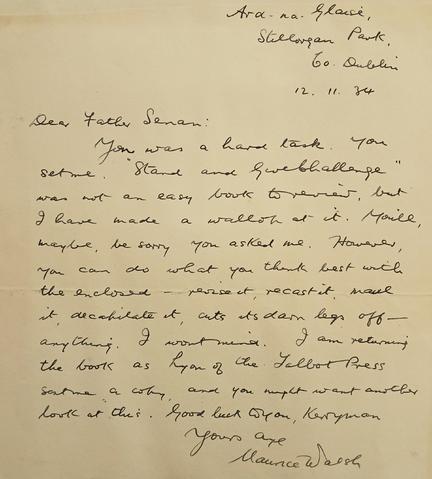 Ard-na-Glaise,
Stillorgan Park,
Co. Dublin
12. 11. 34
Dear Father Senan:
You was a hard task. You
set me. "Stand and Give Challenge"
was not an easy book to review, but
I have made a wallop at it. You'll,
maybe, be sorry you asked me. However,
you can do what you think best with
the enclosed – revise it, recast it, maul
it, decapitate it, cuts its darn legs off –
anything. I wont mind. I am returning
the book as Lyon of the Talbot Press
sent me a copy, and you might want another
look at this. Good luck to you, Kerryman
Yours axe
Maurice Walsh